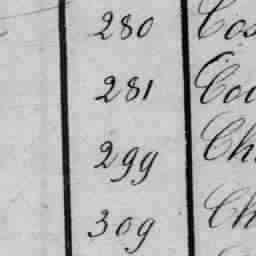 280 Cos
281 Coo
299 Ch
309 Ch